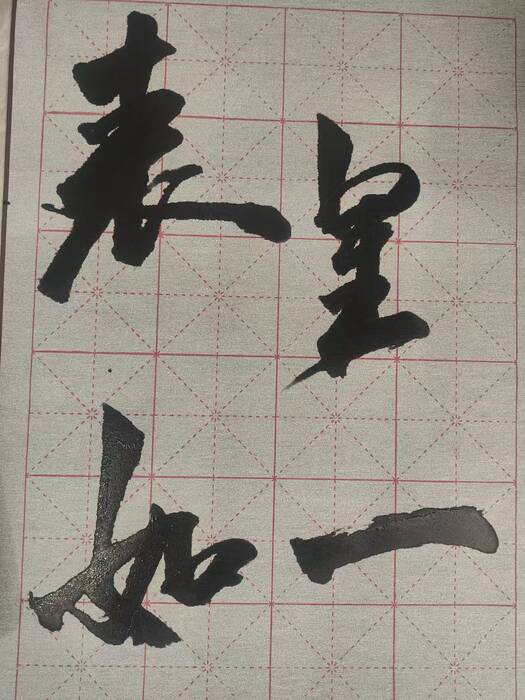 表里
如一